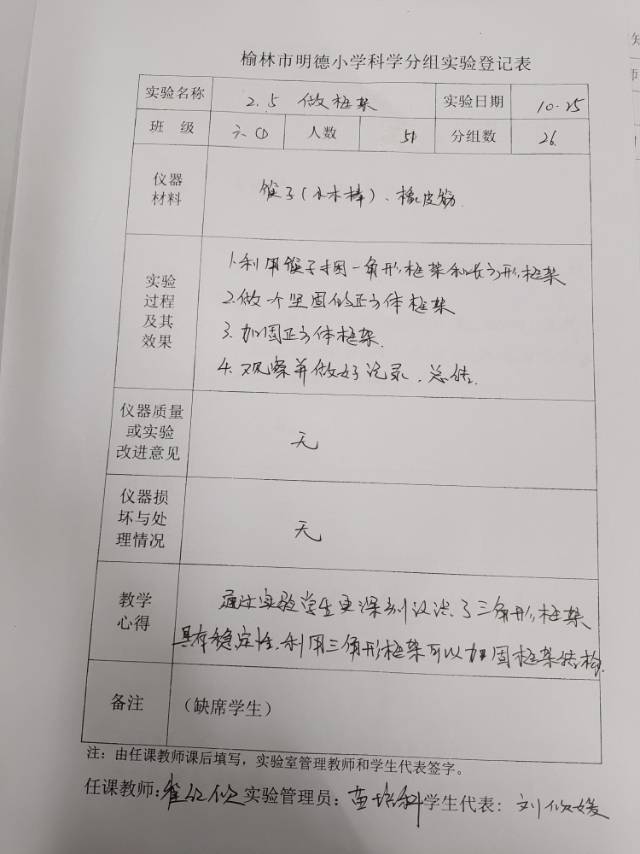 榆林市明德小学科学分组实验登记表
实验名称 2.5 做框架 实验日期 10.25
班 级 六① 人数 51 分组数 26
仪器
材料
筷子(小木棒)、橡皮筋
实验
过程
及其
效果
1.利用筷子捆三角形框架和长方形框架
2.做个坚固的正方体框架
3.加固正方体框架.
4.观察并做好记录、总结.
仪器质量
或实验
改进意见
无
仪器损
坏与处
理情况
无
教学
心得
通过实验学生更深刻认识了三角形框架
具有稳定性.利用三角形框架可以加固框架结构.
备注 (缺席学生)
注:由任课教师课后填写,实验室管理教师和学生代表签字。
任课教师: 实验管理员: 学生代表:刘